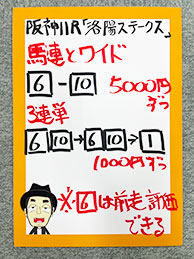 阪神11R「洛陽ステークス」
馬連とワイド
6-10 5000円ずつ
3連単
6 10→6 10→1
1000円ずつ
※6は前走評価
できる